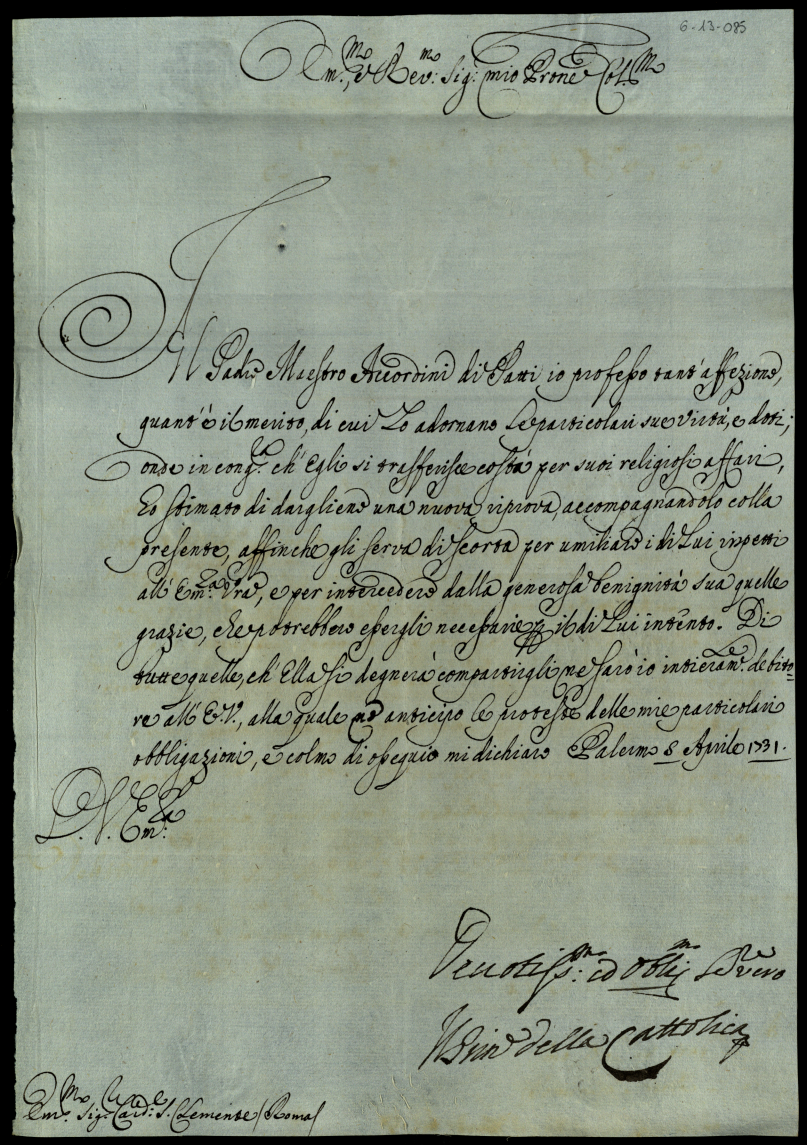 6-13-085
Em.mo, e Rev.mo Sig: mio Prone Col.mo
Al Padre Maestro Accordini di Patti io professo tant' affezione,
quant' è il merito, di cui Lo adornano Le particolari sue virtù, e doti;
onde in cong.ra ch' Egli si trasferisce costà per suoi religiosi affari,
Eo stimato di dargliene una nuova riprova, accompagnandolo colla
presente, affinche gli serva di scorta per umiliare i di Lui rispetti
all' Em.za Vra, e per intercedere dalla generosa benignità sua quelle
grazie, che potrebbero essergli necessarie p il di Lui intento. Di
tutte quelle, ch' Ella si degnerà compartirgli ne sarò io intieram.te debito=
re all' E.V., alla quale ne anticipo le proteste delle mie particolari
obbligazioni, e colmo di ossequio mi dichiaro Palermo 8 Aprile 1731.
D. V. Em.za
Devotiss.mo: ed Obblig.mo Servre vero
Il Prin.e della Cattolica
Em.mo Sig. Card.le S. Clemente / Roma /